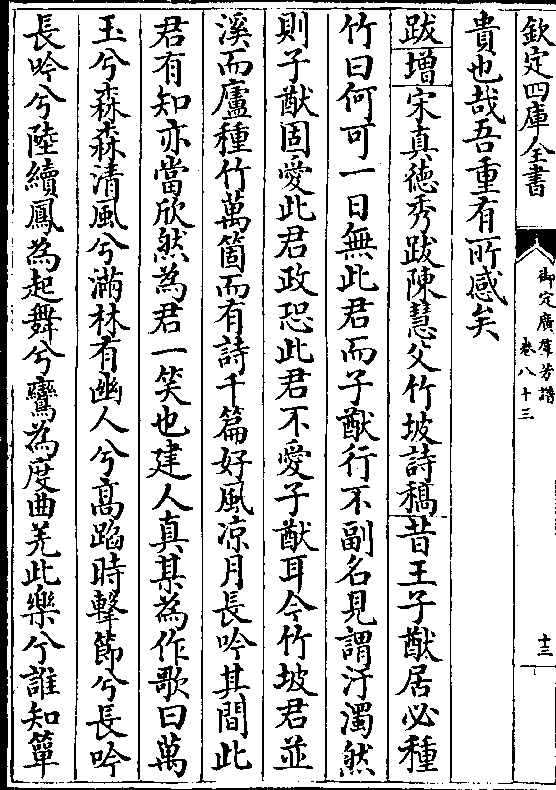 欽定四庫全書
御定廣羣芳譜
卷八十三
十三
貴也哉吾重有所感矣
跋增宋真德秀跋陳慧父竹坡詩稿昔王子猷居必種
竹曰何可一日無此君而子猷行不副名見謂汙濁然
則子猷固愛此君政恐此君不愛子猷耳今竹坡君並
溪而廬種竹萬箇而有詩千篇好風凉月長吟其間此
君有知亦當欣然為君一笑也建人真某為作歌曰萬
玉兮森森清風兮滿林有幽人兮高蹈時擊節兮長吟
長吟兮陸續鳳為起舞兮鸞為度曲羌此樂兮誰知簞